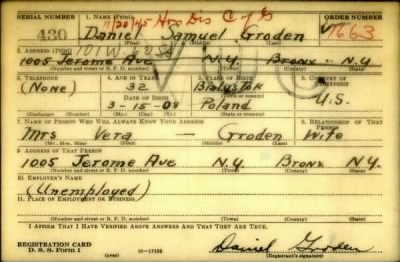 SERIAL NUMBER 1. NAME (Print) 11/20/45 Hon Dis ORDER NUMBER
430 Daniel Samuel Groden V1663
(First) (Middle) (Last)
2. ADDRESS (Print) 101 W.
1005 Jerome Ave N.Y. Bronx - N.Y
(Number and street or R. F. D. number) (Town) (County) (State)
3. TELEPHONE 4. AGE IN YEARS 5. PLACE OF BIRTH 6. COUNTRY OF CITIZENSHIP
(None) 32 Bialystok
DATE OF BIRTH (Town or county)
3-15-08 Poland U.S.
(Exchange) (No.) (Mo.) (Day) (Yr.) (State or country)
7. NAME OF PERSON WHO WILL ALWAYS KNOW YOUR ADDRESS 8. RELATIONSHIP OF THAT PERSON
Mrs Vera — Groden Wife
(Mr., Mrs., Miss) (First) (Middle) (Last)
9. ADDRESS OF THAT PERSON
1005 Jerome Ave N.Y. Bronx N.Y.
(Number and street or R. F. D. number) (Town) (County) (State)
10. EMPLOYER'S NAME
(Unemployed)
11. PLACE OF EMPLOYMENT OR BUSINESS
(Number and street or R. F. D. number) (Town) (County) (State)
I AFFIRM THAT I HAVE VERIFIED ABOVE ANSWERS AND THAT THEY ARE TRUE.
REGISTRATION CARD
D. S. S. Form 1 (over) 16—17105 Daniel Groden
(Registrant's signature)